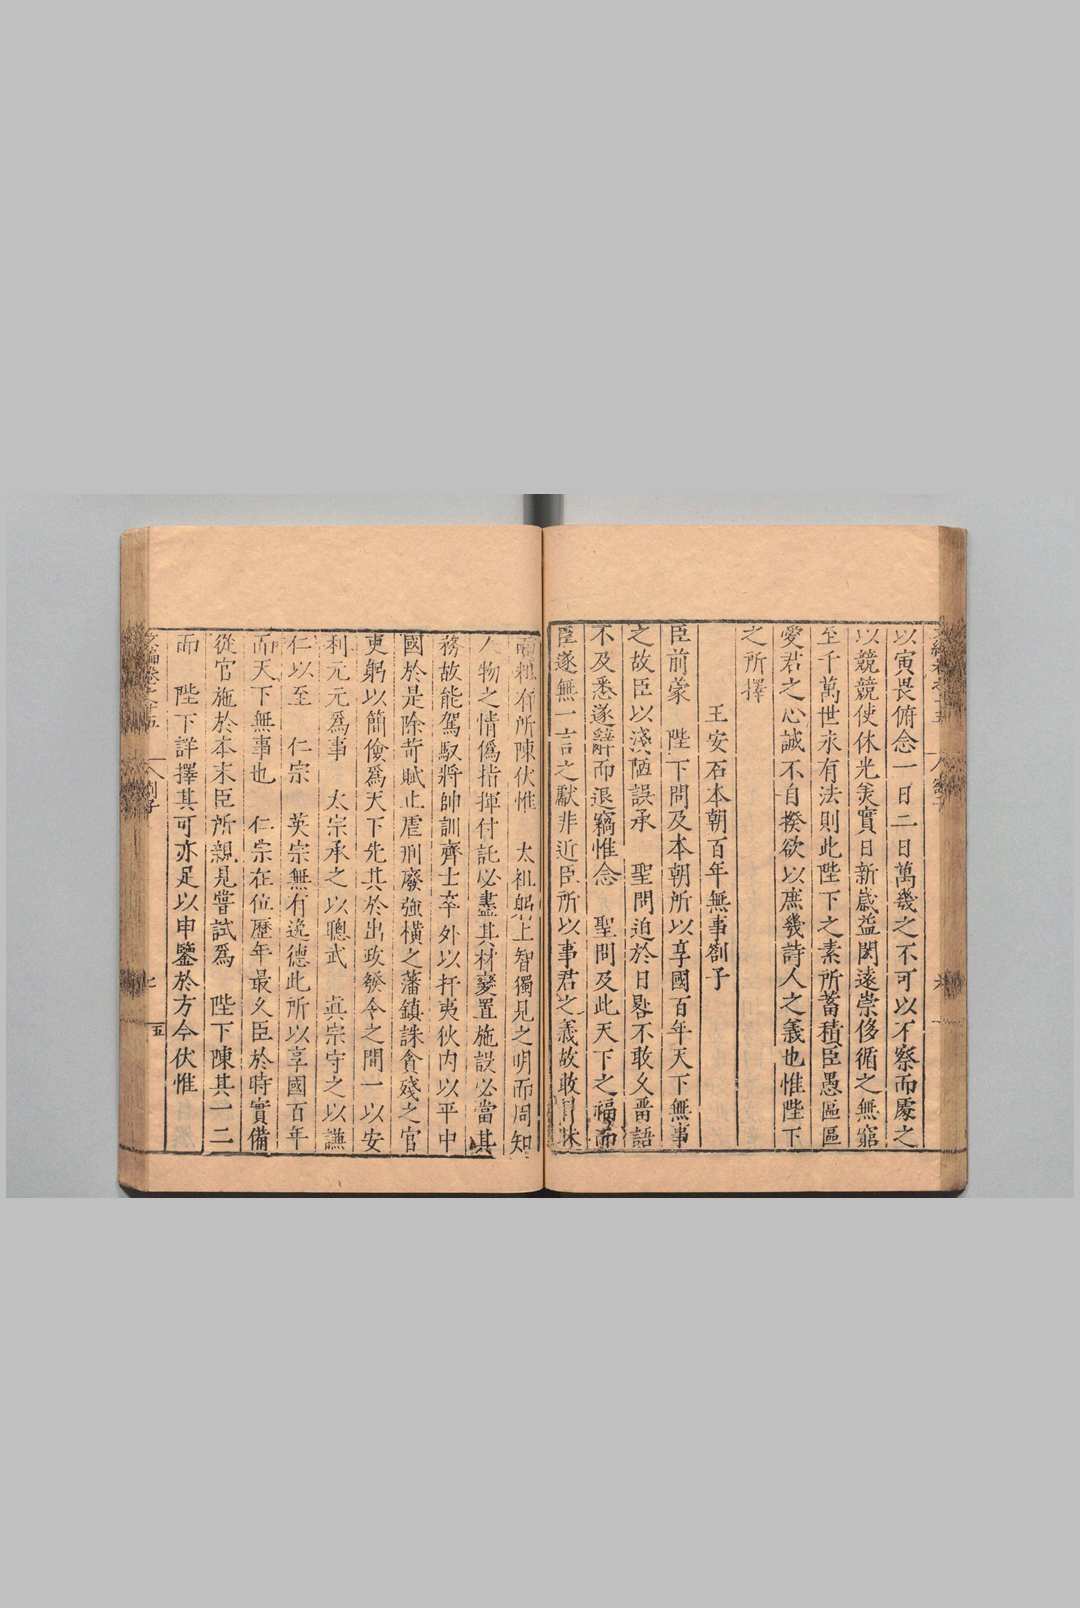 以寅畏俯念一日二日萬幾之不可以不察而處之
以兢兢使休光美實日新歲益閎遠崇侈循之無窮
至千萬世永有法則此陛下之素所蓄積臣愚區區
愛君之心誠不自揆欲以庶幾詩人之義也惟陛下
之所擇
王安石本朝百年無事劄子
臣前蒙 陛下問及本朝所以享國百年天下無事
之故臣以淺陋誤承 聖問迫於日晷不敢久畱語
不及悉遂辭而退竊惟念 聖問及此天下之福而
臣遂無一言之獻非近臣所以事君之義故敢冒昧
而粗有所陳伏惟 太祖躬上智獨見之明而周知
人物之情僞指揮付託必盡其材變置施設必當其
務故能駕馭將帥訓齊士卒外以扞夷狄內以平中
國於是除苛賦止虐刑廢強橫之藩鎮誅貪殘之官
吏躬以簡儉爲天下先其於出政發令之間一以安
利元元爲事 太宗承之以聰武 眞宗守之以謙
仁以至 仁宗 英宗無有逸德此所以享國百年
而天下無事也 仁宗在位歷年最久臣於時實備
從官施於本末臣所親見嘗試爲 陛下陳其一二
而 陛下詳擇其可亦足以申鑒於方今伏惟
七
五